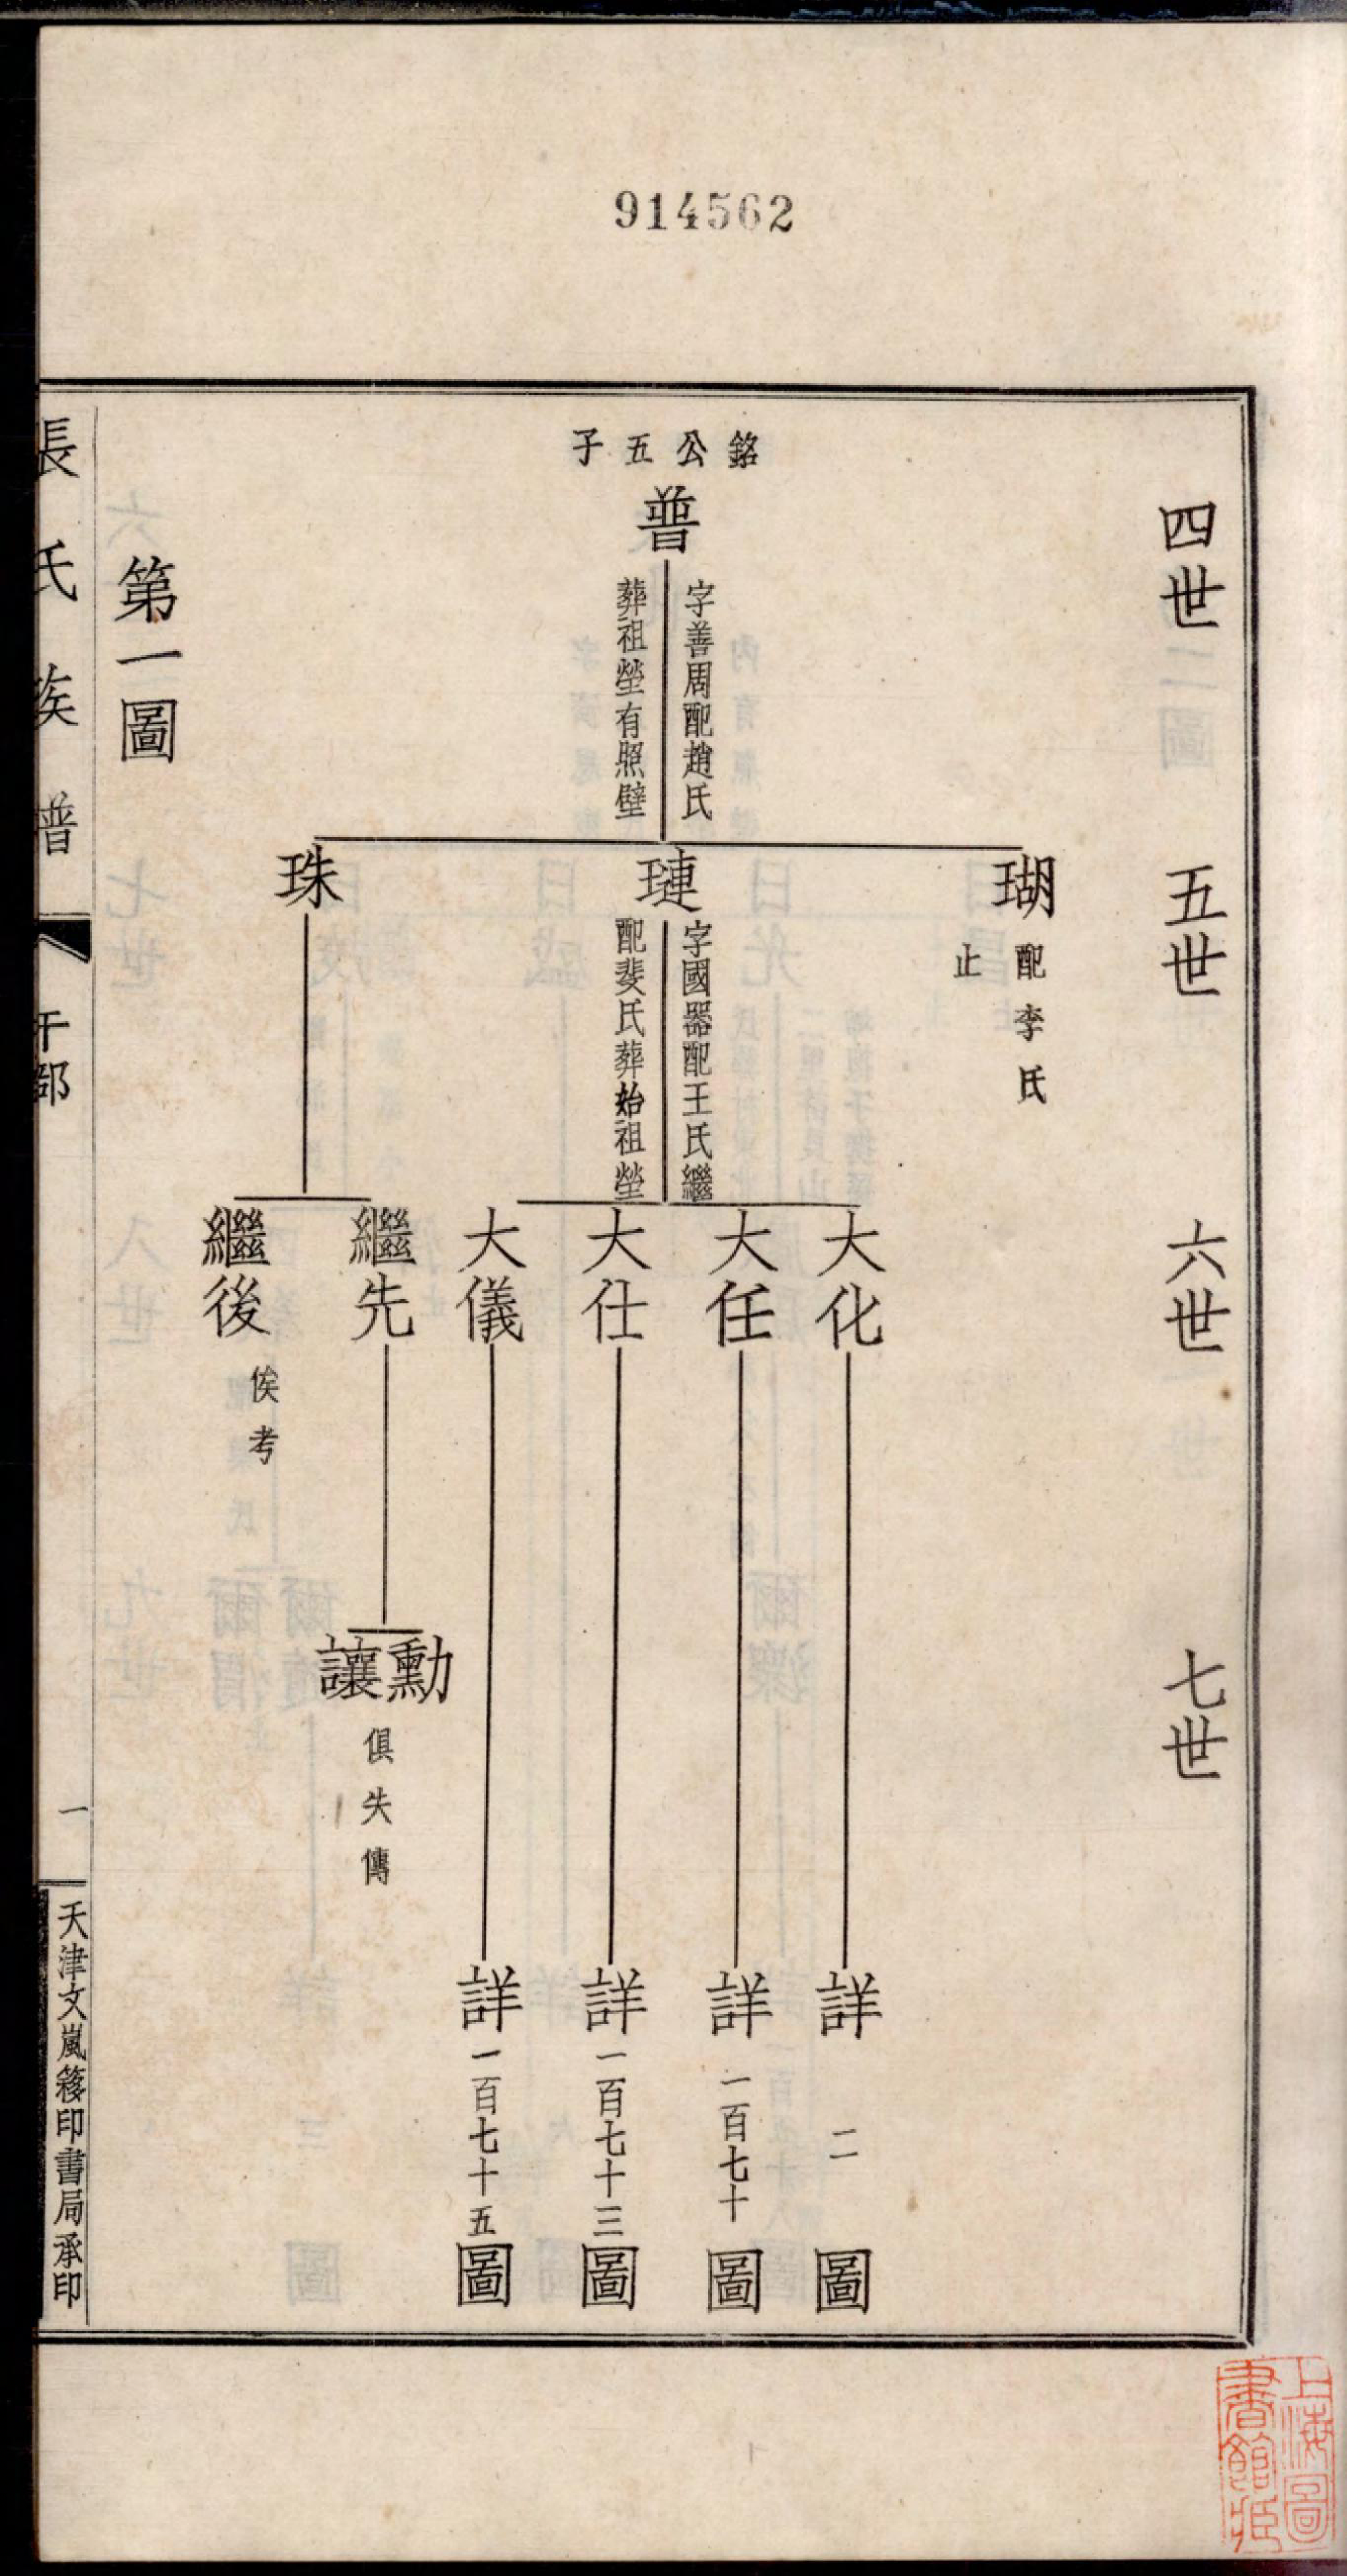 914562
四世
五世
六世
七世
銘公五子
普
字善周配趙氏
葬祖塋有照壁
瑚
配李氏
止
璉
字國器配王氏繼
配斐氏葬始祖塋
珠
大化
詳二圖
大任
詳一百七十圖
大仕
詳一百七十三圖
大儀
詳一百七十五圖
繼先
勳
讓
俱失傳
繼後
俟考
第一圖
張氏族譜
干部
一
天津文嵐簃印書局承印
上海圖
書館藏